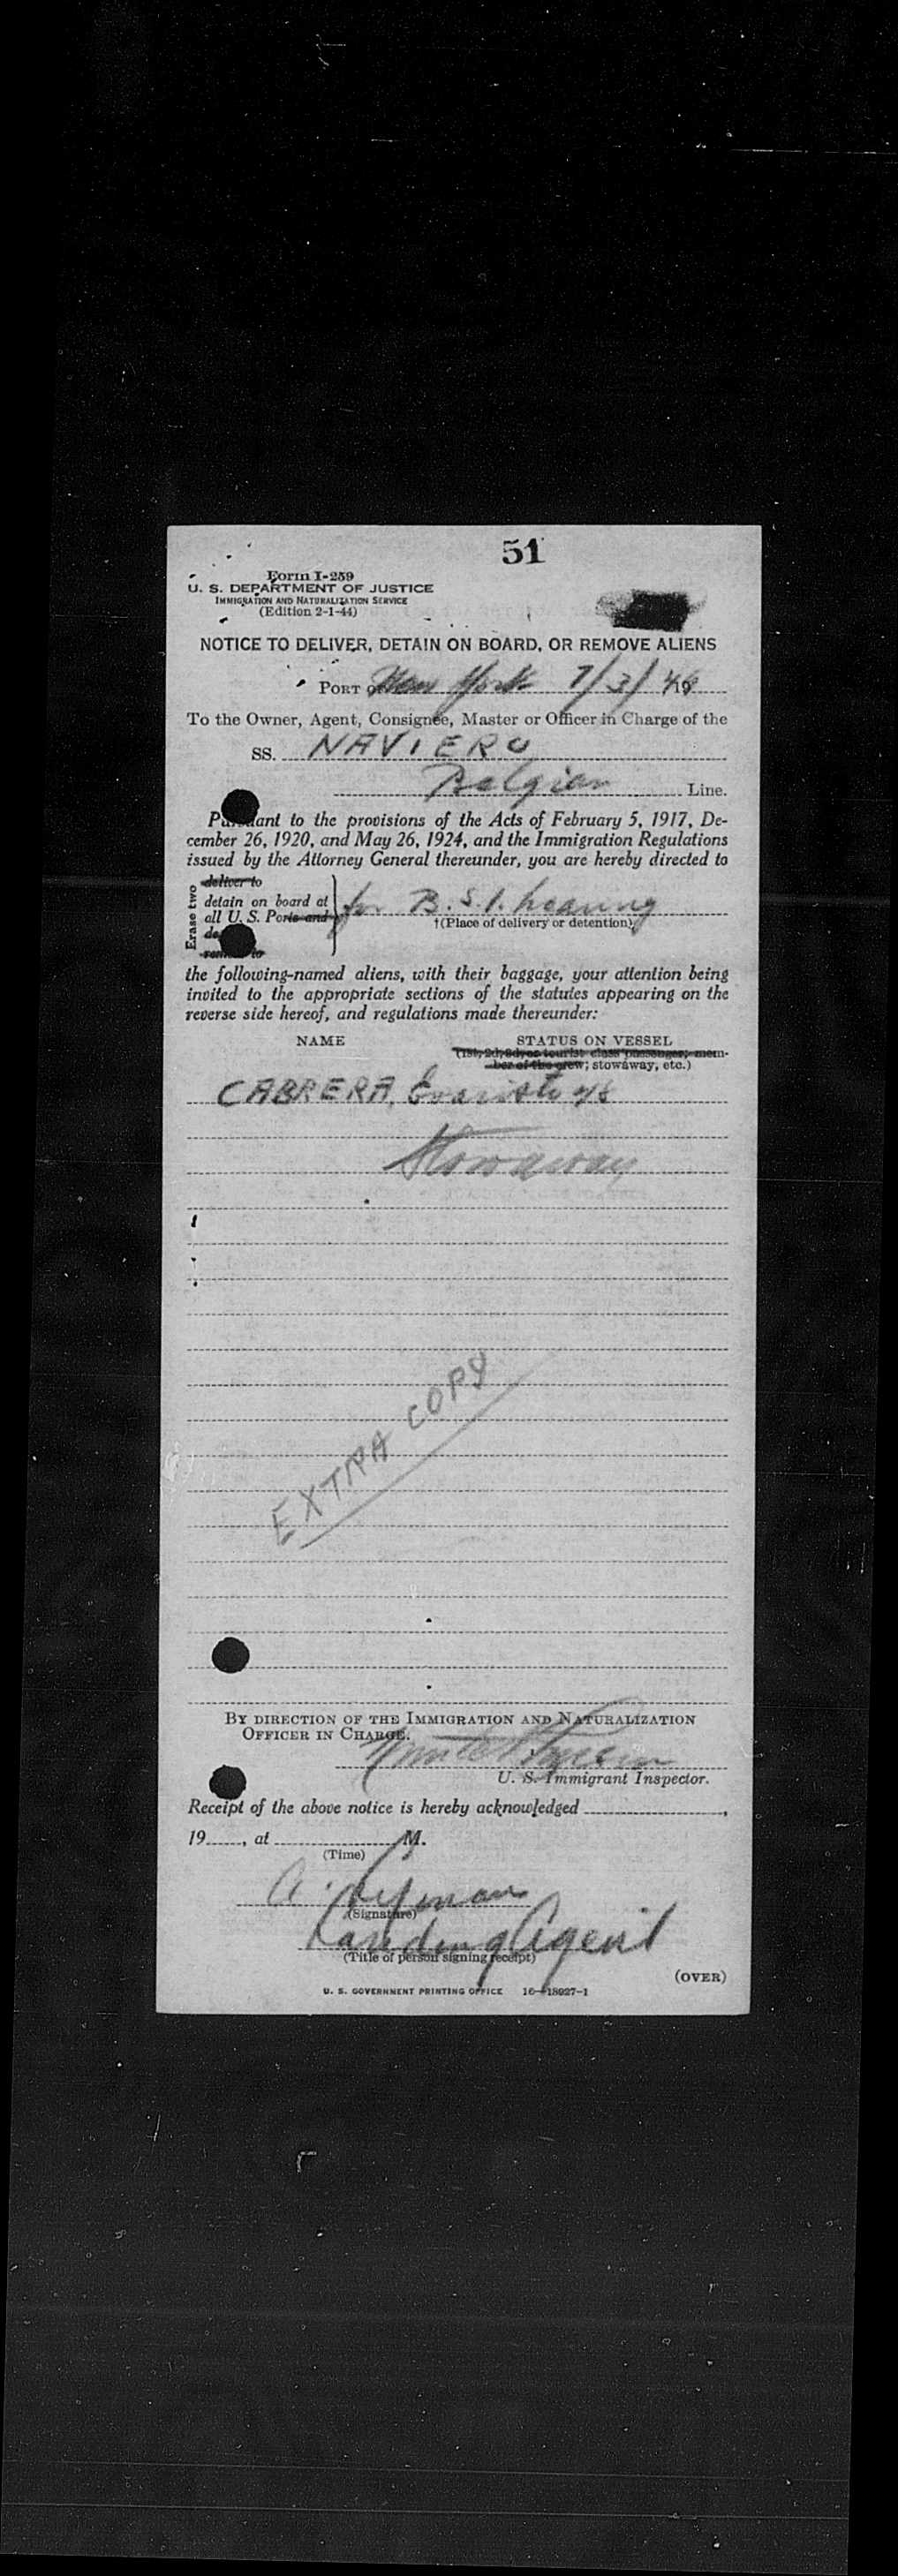 51
Form I-259
U. S. DEPARTMENT OF JUSTICE
IMMIGRATION AND NATURALIZATION SERVICE
(Edition 2-1-44)
NOTICE TO DELIVER, DETAIN ON BOARD, OR REMOVE ALIENS
PORT OF New York 7/3/46 19
To the Owner, Agent, Consignee, Master or Officer in Charge of the
SS. NAVIERO
Belgian Line.
Pursuant to the provisions of the Acts of February 5, 1917, De-
cember 26, 1920, and May 26, 1924, and the Immigration Regulations
issued by the Attorney General thereunder, you are hereby directed to
Erase two
deliver to
detain on board at
all U. S. Ports and
remove to
for B.S.I. hearing
†(Place of delivery or detention)
the following-named aliens, with their baggage, your attention being
invited to the appropriate sections of the statutes appearing on the
reverse side hereof, and regulations made thereunder:
NAME STATUS ON VESSEL
(1st, 2d, 3d, or tourist class passenger; mem-
ber of the crew; stowaway, etc.)
CABRERA, Evaristo
Stowaway
EXTRA COPY
BY DIRECTION OF THE IMMIGRATION AND NATURALIZATION
OFFICER IN CHARGE.
U. S. Immigrant Inspector.
Receipt of the above notice is hereby acknowledged ,
19 , at M.
(Time)
A.
(Signature)
Landing Agent
(Title of person signing receipt)
(OVER)
U. S. GOVERNMENT PRINTING OFFICE 16—18927-1